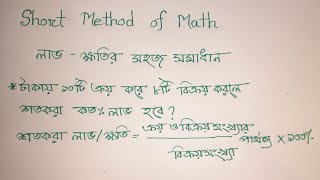 Short Method of Math
লাভ - ক্ষতির সহজ সমাধান
* টাকায় ১০টি ক্রয় করে ৮টি বিক্রয় করলে
শতকরা কত% লাভ হবে ?
শতকরা লাভ/ক্ষতি = ক্রয় ও বিক্রয় সংখ্যার পার্থক্য × ১০০%
বিক্রয় সংখ্যা